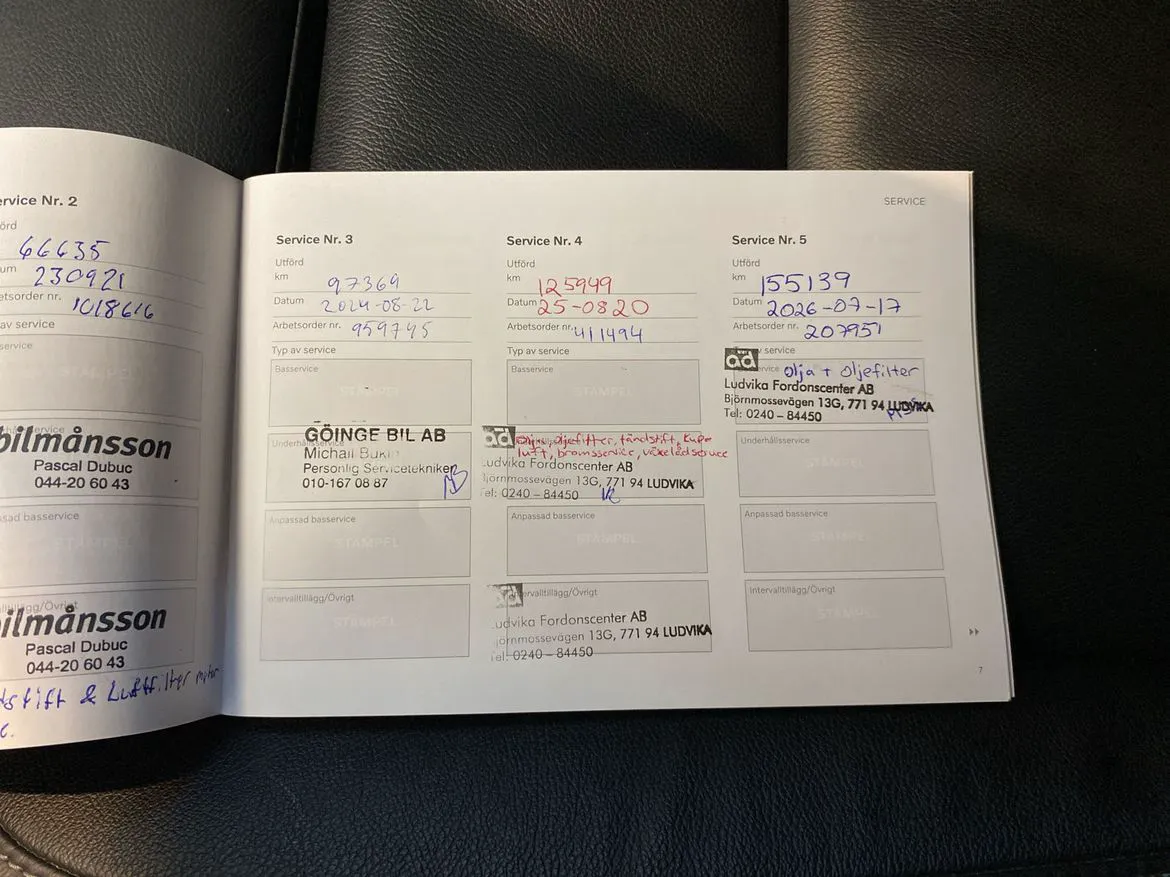 ervice Nr. 2
örd
66635
um 230921
etsorder nr. 1018616
av service
service
STÄMPEL
bilmånsson
Pascal Dubuc
044-20 60 43
sad basservice
STÄMPEL
/Övrigt
ilmånsson
Pascal Dubuc
044-20 60 43
stift & Luftfilter motor
SERVICE
Service Nr. 3
Utförd
km 97369
Datum 2024-08-22
Arbetsorder nr. 959745
Typ av service
Basservice
STÄMPEL
Underhållsservice
GÖINGE BIL AB
Michail
Personlig Servicetekniker
010-167 08 87
Anpassad basservice
STÄMPEL
Intervalltillägg/Övrigt
STÄMPEL
Service Nr. 4
Utförd
km 125949
Datum 25-0820
Arbetsorder nr. 411494
Typ av service
Basservice
STÄMPEL
ad
Olja, oljefilter, tändstift, kupe
luft, bromsservice, växelådservice
udvika Fordonscenter AB
jörnmossevägen 13G, 771 94 LUDVIKA
el: 0240 – 84450
Anpassad basservice
STÄMPEL
ad
ervalltillägg/Övrigt
udvika Fordonscenter AB
jörnmossevägen 13G, 771 94 LUDVIKA
el: 0240 – 84450
Service Nr. 5
Utförd
km 155139
Datum 2026-07-17
Arbetsorder nr. 207951
service
ad
Olja + Oljefilter
Ludvika Fordonscenter AB
Björnmossevägen 13G, 771 94 LUDVIKA
Tel: 0240 – 84450
Underhållsservice
Anpassad basservice
STÄMPEL
Intervalltillägg/Övrigt
STÄMPEL
7